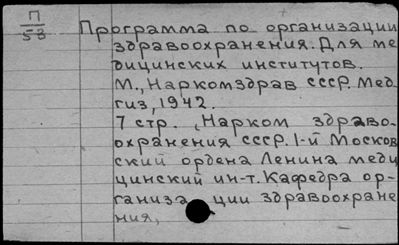 П
53
Программа по организации
здравоохранения. Для ме
дицинских институтов.
М., Наркомздрав СССР. Мед-
гиз, 1942.
7 стр. , Нарком здраво-
охранения СССР. 1-й Москов
ский ордена Ленина меди
цинский ин-т. Кафедра ор-
ганиза ции здравоохране
ния,